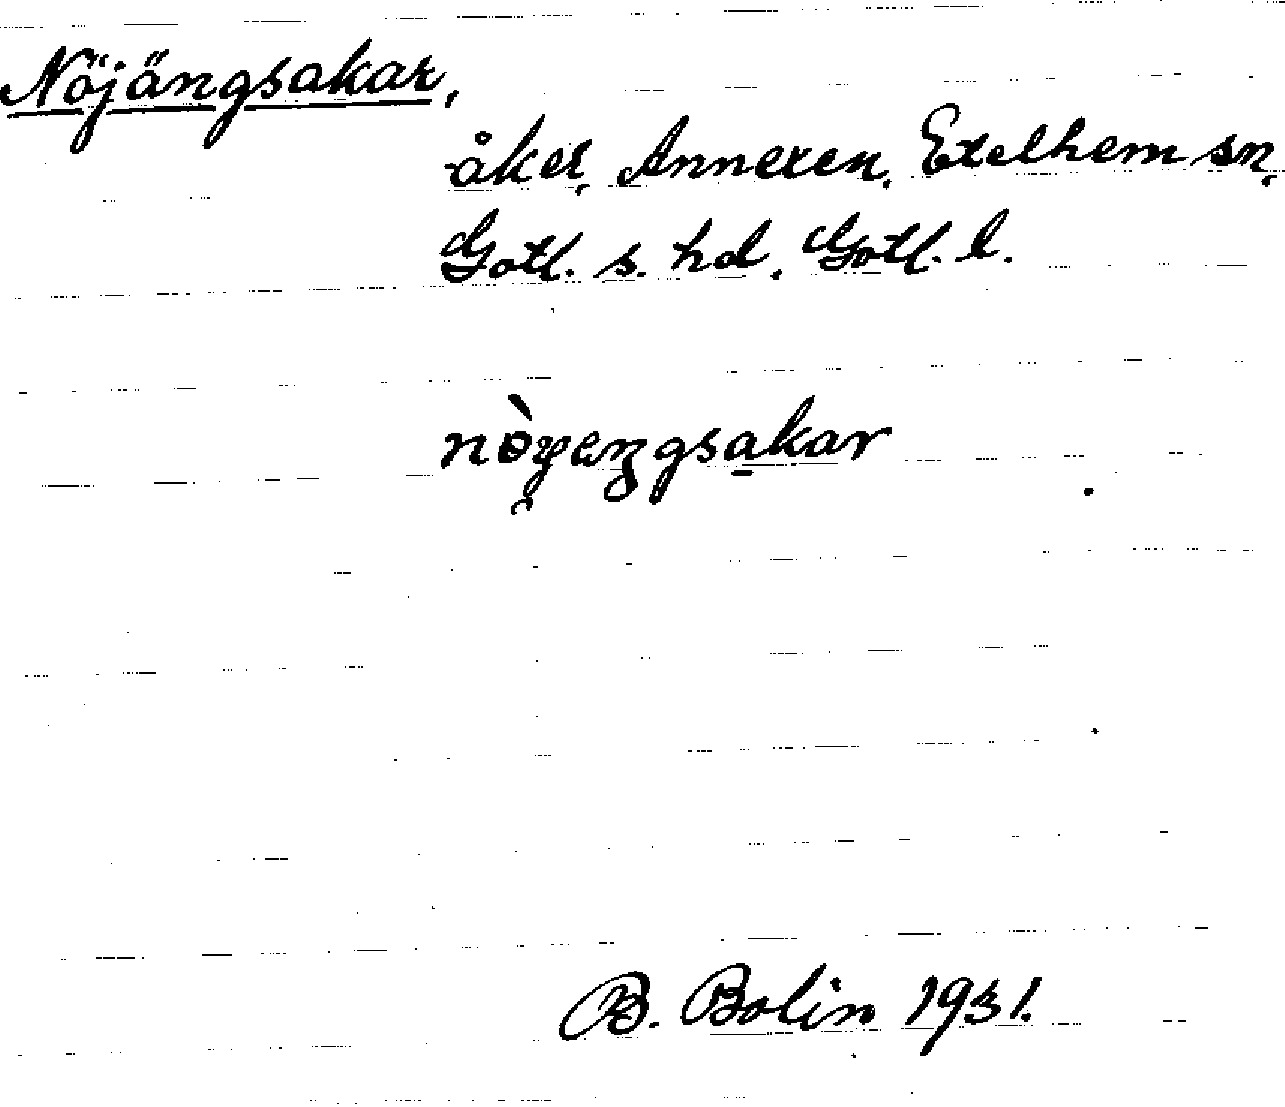 Nöjängsakar,
åker, Annexen, Etelhem sn,
Gotl. s. hd, Gotl. l.
nòyeŋgsakar
B. Bolin 1931.